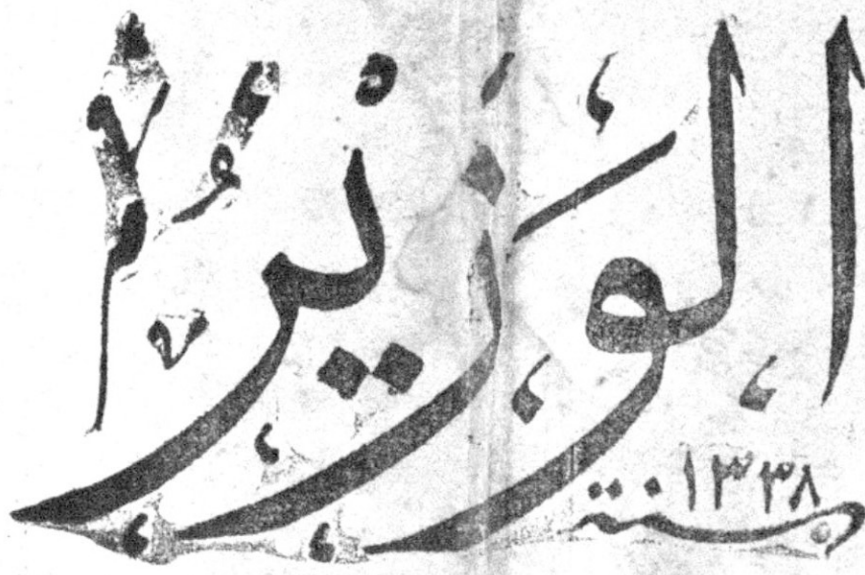 الوزير
سنة ١٣٣٨